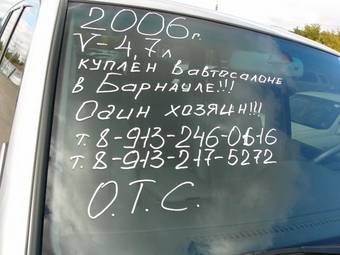 2006г.
V-4,7л
куплен в автосалоне
в Барнауле!!!
Один хозяин!!!
т. 8-913-246-0616
т. 8-913-217-5272
О.Т.С.